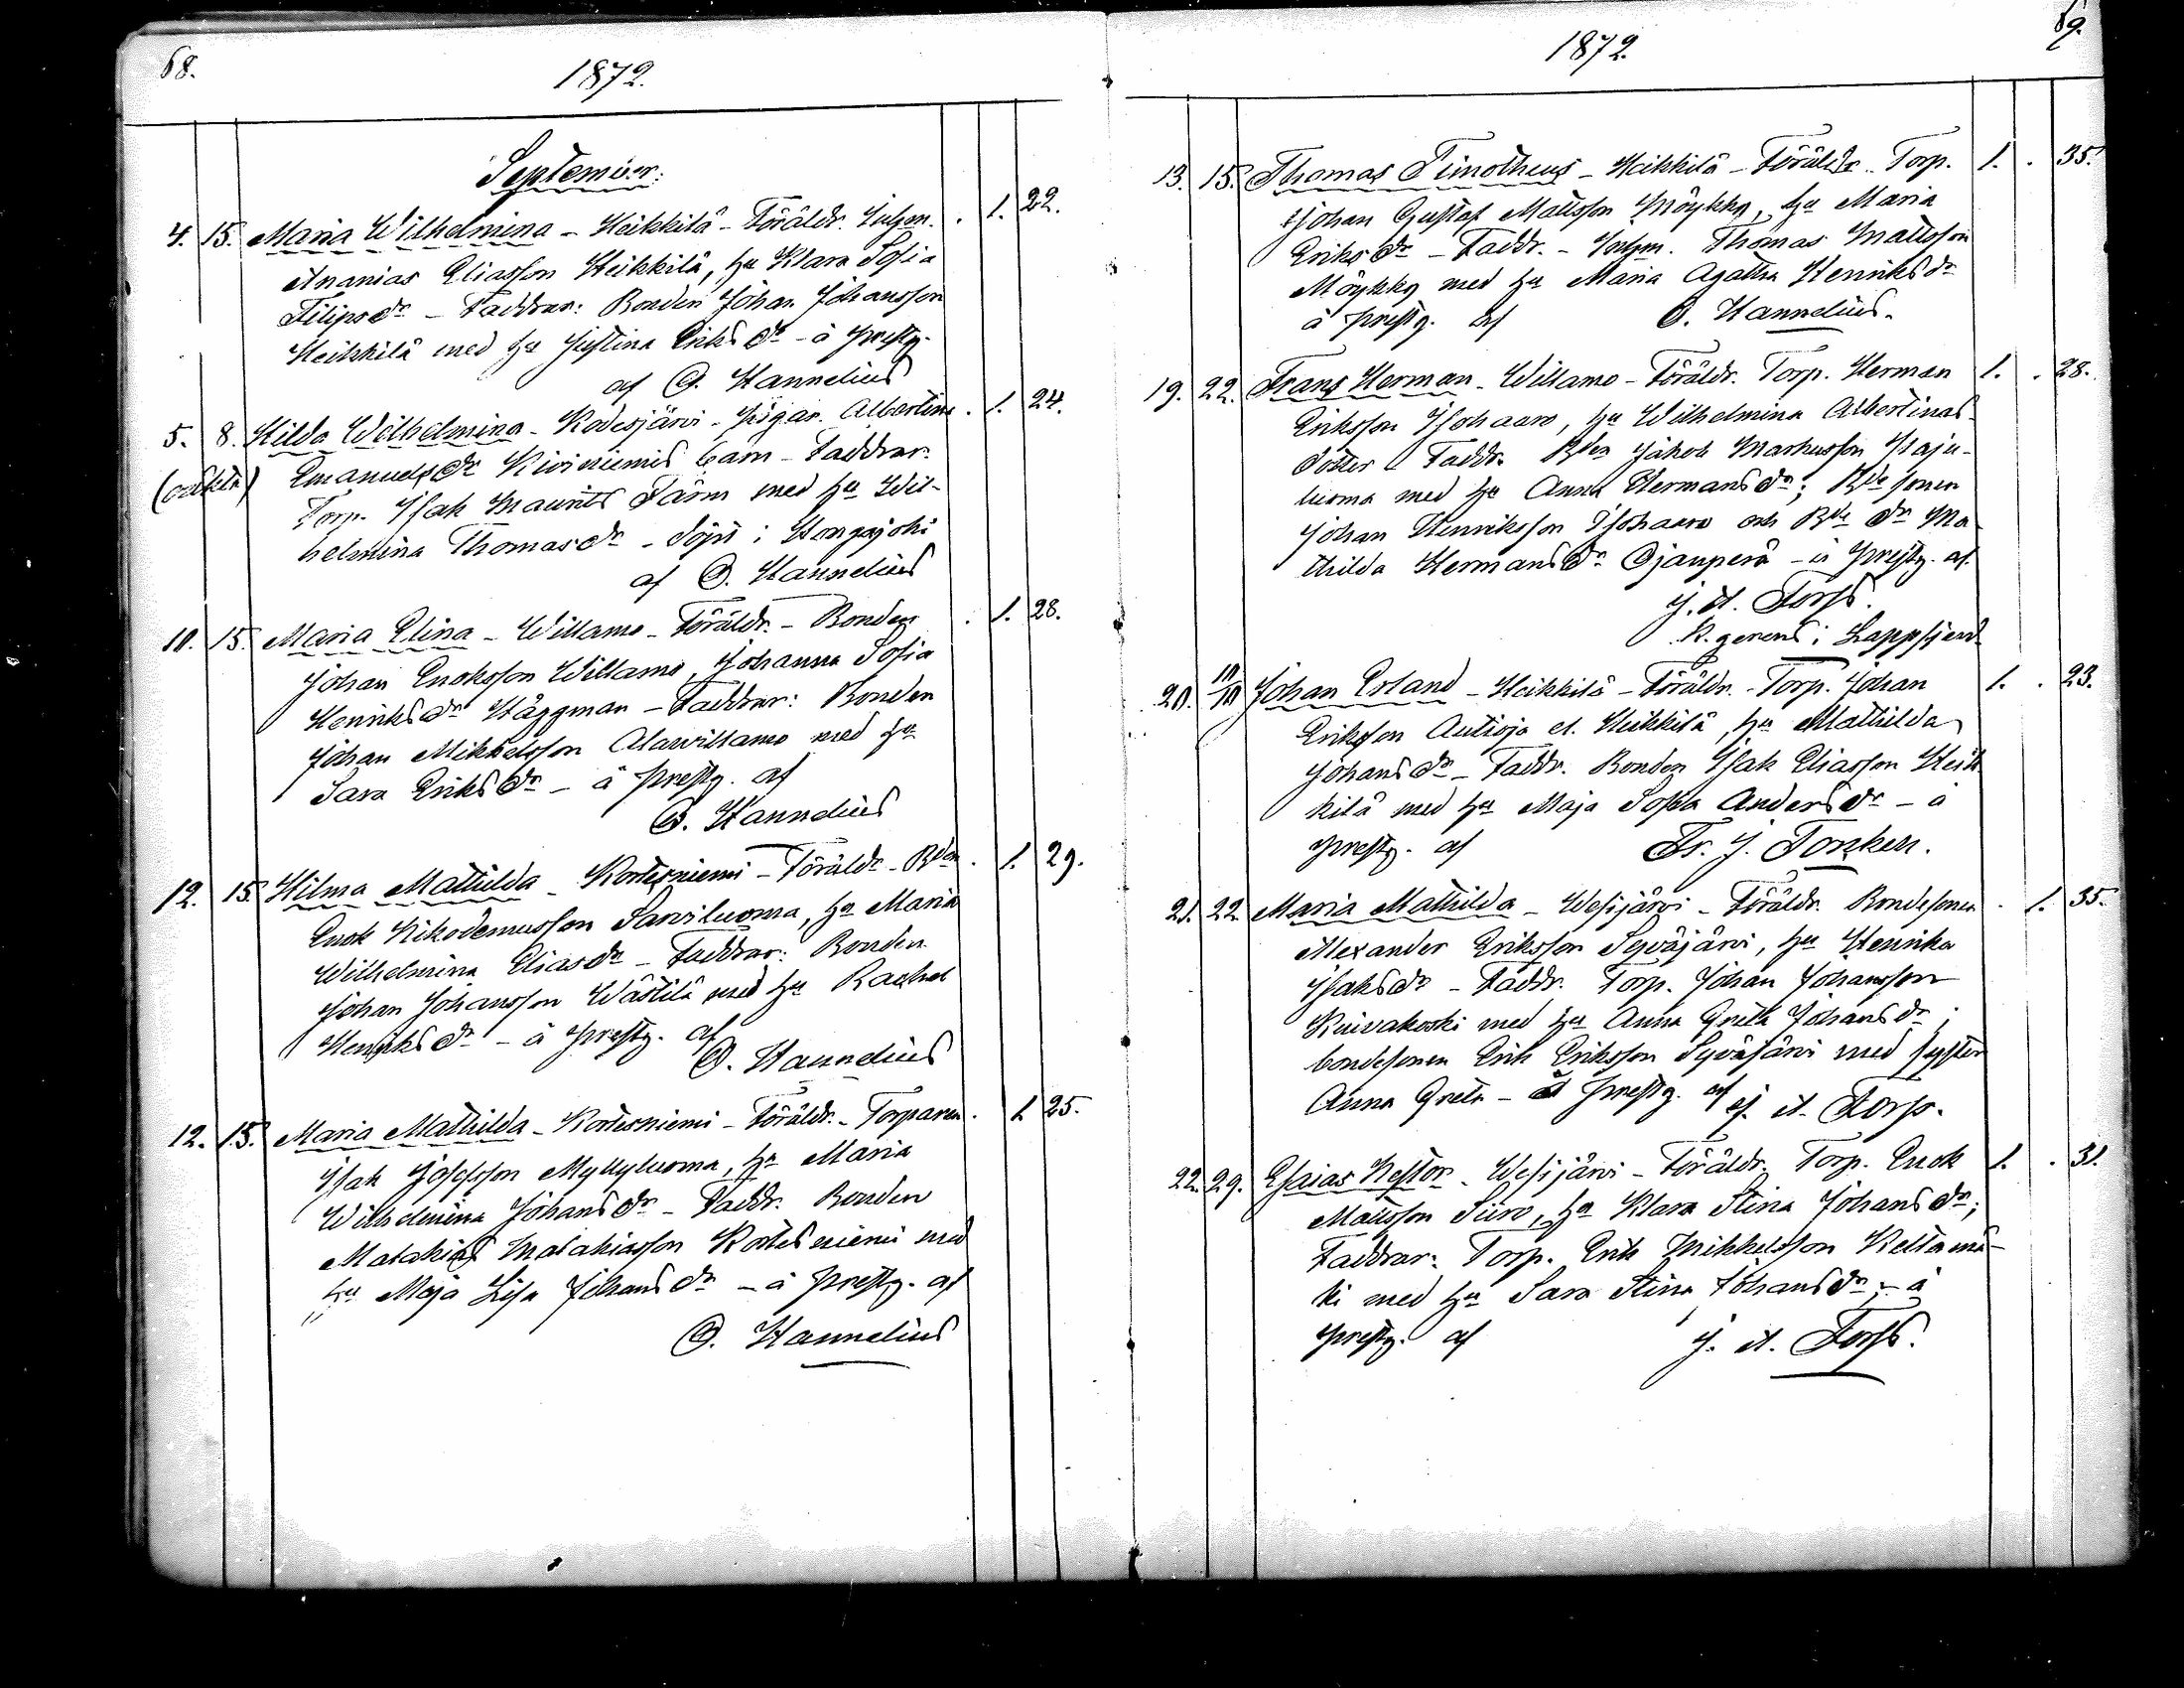 68.
1872.
September.
4. 15. Maria Wilhelmina - Heikkilä - Föräldr. Inhm. . 1. 22.
Ananias Eliasson Heikkilä, hu Klara Sofia
Filipsdr - Faddrar: Bonden Johan Johansson
Heikkilä med hu Justina Eriksdr - å prestg.
af O. Hannelius
5. 8. Hilda Wilhelmina - Kodesjärvi - Pigan Albertina . 1. 24.
(oäkta) Emanuelsdr Kiviniemis barn - Faddrar.
Torp. Isak Maurits Färm med hu Wil-
helmina Thomasdr - döpt i Hongojoki
af O. Hannelius
10. 15. Maria Elina - Willamo - Föräldr. - Bonden . 1. 28.
Johan Enoksson Willamo, Johanna Sofia
Henriksdr Häggman - Faddrar: Bonden
Johan Mikkelsson Alawillamo med hu
Sara Eriksdr - å prestg. af
O. Hannelius
12. 15. Hilma Mathilda - Kortesniemi - Föräldr - Bden . 1. 29.
Enok Nikodemusson Sarviluoma, hu Maria
Wilhelmina Eliasdr - Faddrar: Bonden
Johan Johansson Wästilä med hu Rachel
Henriksdr - å prestg. af
O. Hannelius
12. 15. Maria Mathilda - Kortesniemi - Föräldr. - Torparen . 1 25.
Isak Josefsson Myllyluoma, hu Maria
Wilhelmina Johansdr - Faddr. Bonden
Malakias Malakiasson Kortesniemi med
hu Maja Lisa Johansdr - å prestg. af
O. Hannelius
1872.
69.
13. 15. Thomas Timotheus - Heikkilä - Föräldr - Torp. 1. . 35.
Johan Gustaf Mattsson Möykky, hu Maria
Eriksdr - Faddr. - Inhm. Thomas Mattsson
Möykky med hu Maria Agatha Henriksdr
å prestg. af O. Hannelius.
19. 22. Frans Herman - Willamo - Föräldr. Torp. Herman 1. . 28.
Eriksson Isohaaro, hu Wilhelmina Albertinas
dotter - Faddr. Bden Jakob Markusson
luoma med hu Anna Hermansdr; Bdesonen
Johan Henriksson Isohaaro och Bde dr Ma
thilda Hermansdr Ojanperä - å prestg. af
J. A. Forss.
K. gerens i Lappfjerd
20. 10/10 Johan Erland - Heikkilä - Föräldr. - Torp. Johan 1. . 23.
Eriksson Autioja l. Heikkilä, hu Mathilda
Johansdr - Faddr. Bonden Isak Eliasson Heik
kilä med hu Maja Sofia Andersdr - å
prestg. af Fr. J. Tonken.
21. 22. Maria Mathilda - Wesijärvi - Föräldr. Bondesonen . 1. 35.
Alexander Eriksson Syväjärvi, hu Henrika
Isaksdr - Faddr. Torp. Johan Johansson
Kuivakoski med hu Anna Greta Johansdr;
bondesonen Erik Eriksson Syväjärvi med syster
Anna Greta - å prestg. af J. A. Forss.
22. 29. Esaias Nestor - Wesijärvi - Föräldr. Torp. Enok 1. . 31.
Mattsson Siiro, hu Klara Stina Johansdr;
Faddrar: Torp. Erik Mikkelsson Keltamä-
ki med hu Sara Stina Johansdr; - å
prestg. af J. A. Forss.